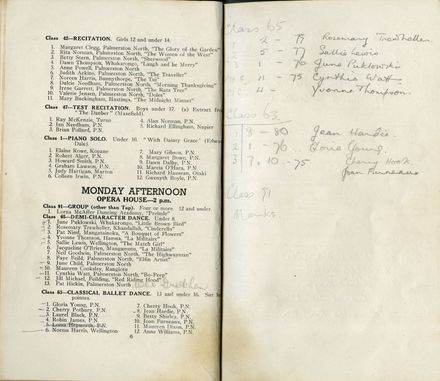 Class 42—RECITATION. Girls 12 and under 14.
1. Margaret Clegg, Palmerston North, "The Glory of the Garden"
2. Rita Norman, Palmerston North, "The Women of the West"
3. Betty Stern, Palmerston North, "Sherwood"
4. Dawn Thompson, Whakarongo, "Laugh and be Merry"
5. Anne Powell, Palmerston North
6. Judith Arkins, Palmerston North, "The Traveller"
7. Noreen Harris, Bunnythorpe, "The Tin"
8. Dulcie Needham, Palmerston North, "Morning Thanksgiving"
9. Irene Garrett, Palmerston North, "The Rata Tree"
10. Valerie Jensen, Palmerston North, "Doles"
11. Mary Buckingham, Hastings, "The Midnight Minner"
Class 47—TEST RECITATION. Boys under 17. (a) Extract from
"The Dauber" (Masefield).
1. Ray McKenzie, Turua
2. Ian Needham, P.N.
3. Brian Pollard, P.N.
4. Alan Norman, P.N.
5. Richard Ellingham, Napier
Class 1—PIANO SOLO. Under 10. "With Dainty Grace" (Edward
Dale).
1. Elaine Rowe, Kopane
2. Robert Alger, P.N.
3. Howard Smith, P.N.
4. Graham Lawson, P.N.
5. Judy Harrigan, Marton
6. Colleen Irwin, P.N.
7. Mary Gibson, P.N.
8. Margaret Bowe, P.N.
9. Dawn Dalley, P.N.
10. Marcia O'Hara, P.N.
11. Richard Hausman, Otaki
12. Gwenyth Boyle, P.N.
MONDAY AFTERNOON
OPERA HOUSE—2 p.m.
Class 91—GROUP (other than Tap). Four or more. 12 and under
1. Lorna McAffer Dancing Academy, "Prelude"
Class 65—DEMI-CHARACTER DANCE. Under 8.
1. June Puklowski, Whakarongo, "Little Brown Bird"
2. Rosemary Trewheller, Khandallah, "Cinderella"
3. Pat Nind, Mangatainoka, "A Bouquet of Flowers"
4. Yvonne Thomson, Hamua, "La Militaire"
5. Sallie Lewis, Wellington, "The Match Girl"
6. Jacqueline O'Brien, Mangamutu, "La Militaire"
7. Neil Goodwin, Palmerston North, "The Highwayman"
8. Faye Feild, Palmerston North, "Elfin Artist"
9. June Child, Palmerston North
10. Maureen Cooksley, Rangiotu
11. Cynthia Watt, Palmerston North, "Bo-Peep"
12. Jill Michael, Feilding, "Red Riding Hood"
13. Pat Hickin, Palmerston North
Class 63—CLASSICAL BALLET DANCE. 13 and under 16.
pointes.
1. Gloria Young, P.N.
2. Cherry Pothury, P.N.
3. Laurel Black, P.N.
4. Robin James, P.N.
5. Lorna Hepworth, P.N.
6. Norma Harris, Wellington
7. Cherry Hook, P.N.
8. Jean Hardie, P.N.
9. Betty Shirley, P.N.
10. Joan Furneaux, P.N.
11. Maureen Dixon, P.N.
12. Anne Williams, P.N.
6
Class 65
1 2 - 79 Rosemary Trewheller.
5 - 77 Sallie Lewis
1 - 76 June Puklowski
11 - 75 Cynthia Watt
4 Yvonne Thompson.
Class 63.
1 8 - 80 Jean Hardie.
2 1 - 76 Gloria Young.
3 7, 10 - 75 Cherry Hook
Joan Furneaux
Class 91
Marks